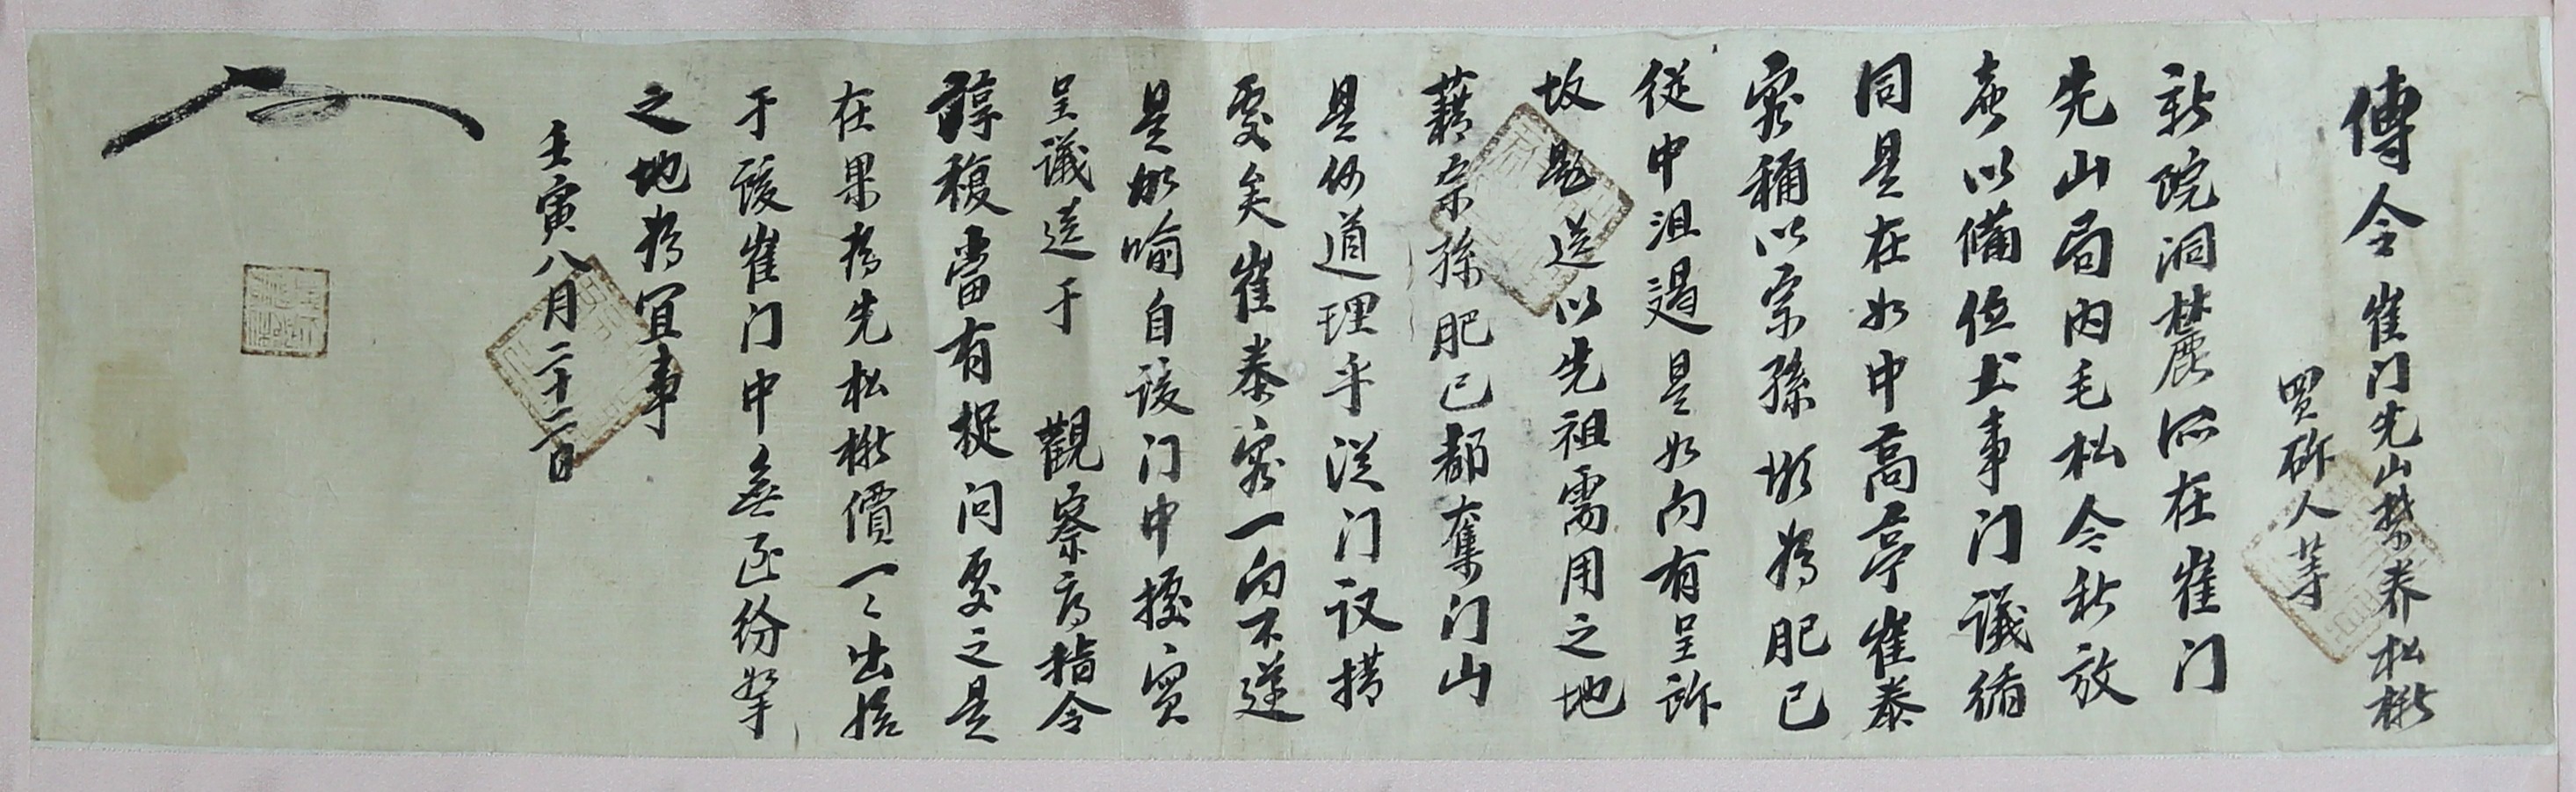 傳令 崔门先山禁养松楸
買斫人等
新院洞麓所在崔门
先山局内毛松今秋放
賣以備位土事门議循
同是在如中高亭崔泰
容稱以宗孫懲為肥己
從中沮遏是如内有呈訴
故題送以先祖需用之地
藉宗孫肥己都奪门山
是何道理乎從门议措
處矣崔泰容一向不遜
是如喻自该门中據實
呈議送于 觀察府指令
諄複當有捉问處之是
在果為先松楸價一〻出捨
于该崔门中無至紛拏
之地為宜事
壬寅八月二十二日